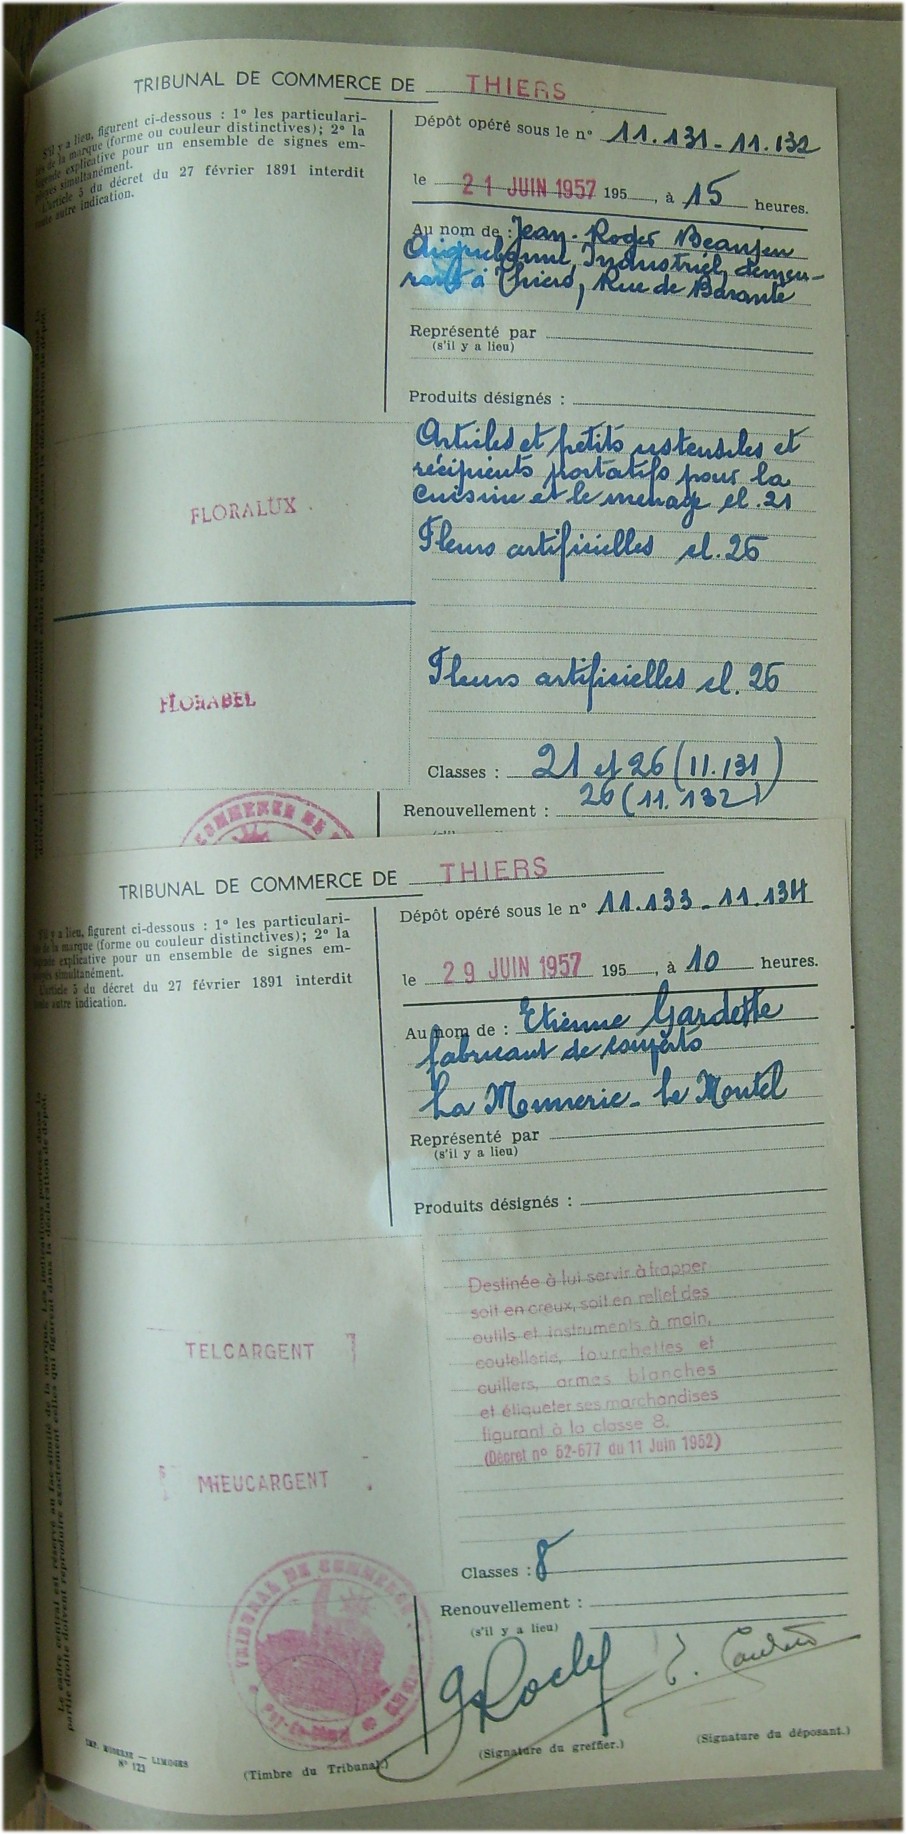 TRIBUNAL DE COMMERCE DE THIERS
S'il y a lieu, figurent ci-dessous : 1° les particulari-
de la marque (forme ou couleur distinctives) ; 2° la
explicative pour un ensemble de signes em-
simultanément.
L'article 5 du décret du 27 février 1891 interdit
toute autre indication.
Dépôt opéré sous le n° 11.131 - 11.132
le 21 JUIN 1957 195 , à 15 heures.
Au nom de : Jean-Roger Beaujeu
Industriel, demeu-
rant à Thiers, Rue de Barante
Représenté par
(s'il y a lieu)
Produits désignés :
Articles et petits ustensiles et
récipients portatifs pour la
cuisine et le menage cl. 21
FLORALUX
Fleurs artificielles cl. 26
FLORABEL
Fleurs artificielles cl. 26
Classes : 21 et 26 (11.131)
26 (11.132)
Renouvellement :
COMMERCE DE
TRIBUNAL DE COMMERCE DE THIERS
S'il y a lieu, figurent ci-dessous : 1° les particulari-
de la marque (forme ou couleur distinctives) ; 2° la
explicative pour un ensemble de signes em-
simultanément.
L'article 5 du décret du 27 février 1891 interdit
toute autre indication.
Dépôt opéré sous le n° 11.133 - 11.134
le 29 JUIN 1957 195 , à 10 heures.
Au nom de : Etienne Gardette
fabricant de couverts
La Monnerie - le Montel
Représenté par
(s'il y a lieu)
Produits désignés :
Destinée à lui servir à frapper
soit en creux, soit en relief des
outils et instruments à main,
coutellerie, fourchettes et
cuillers, armes blanches
et étiqueter ses marchandises
figurant à la classe 8.
(Décret n° 52-677 du 11 Juin 1952)
TELCARGENT
MIEUCARGENT
Classes : 8
Renouvellement :
(s'il y a lieu)
TRIBUNAL DE COMMERCE
THIERS
Puy-de-Dôme
(Timbre du Tribunal.)
(Signature du greffier.)
(Signature du déposant.)
Le cadre central est réservé au fac-similé de la marque. Les indications portées dans la
partie droite doivent reproduire exactement celles qui figurent dans la déclaration de dépôt.
LIMOGES
N° 123